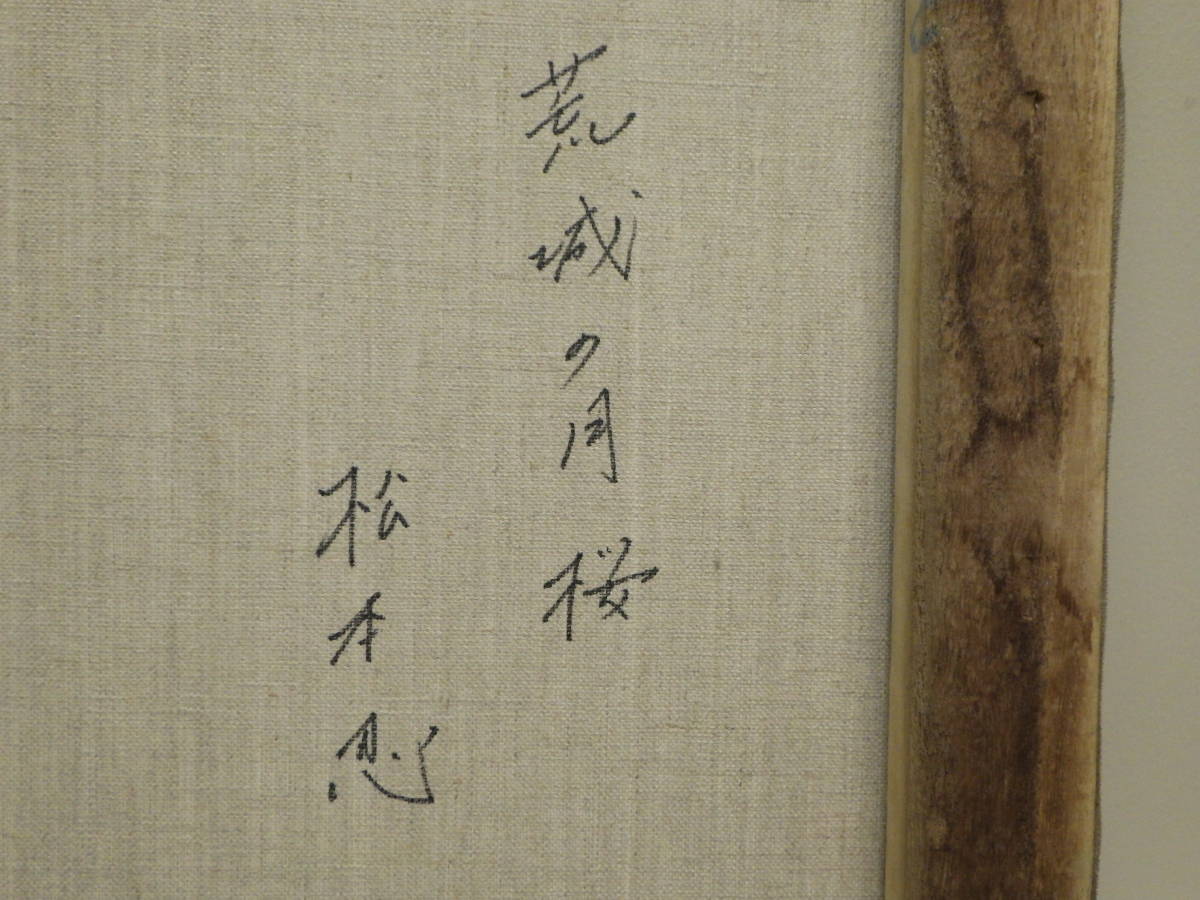 荒城の月 桜
松本忍